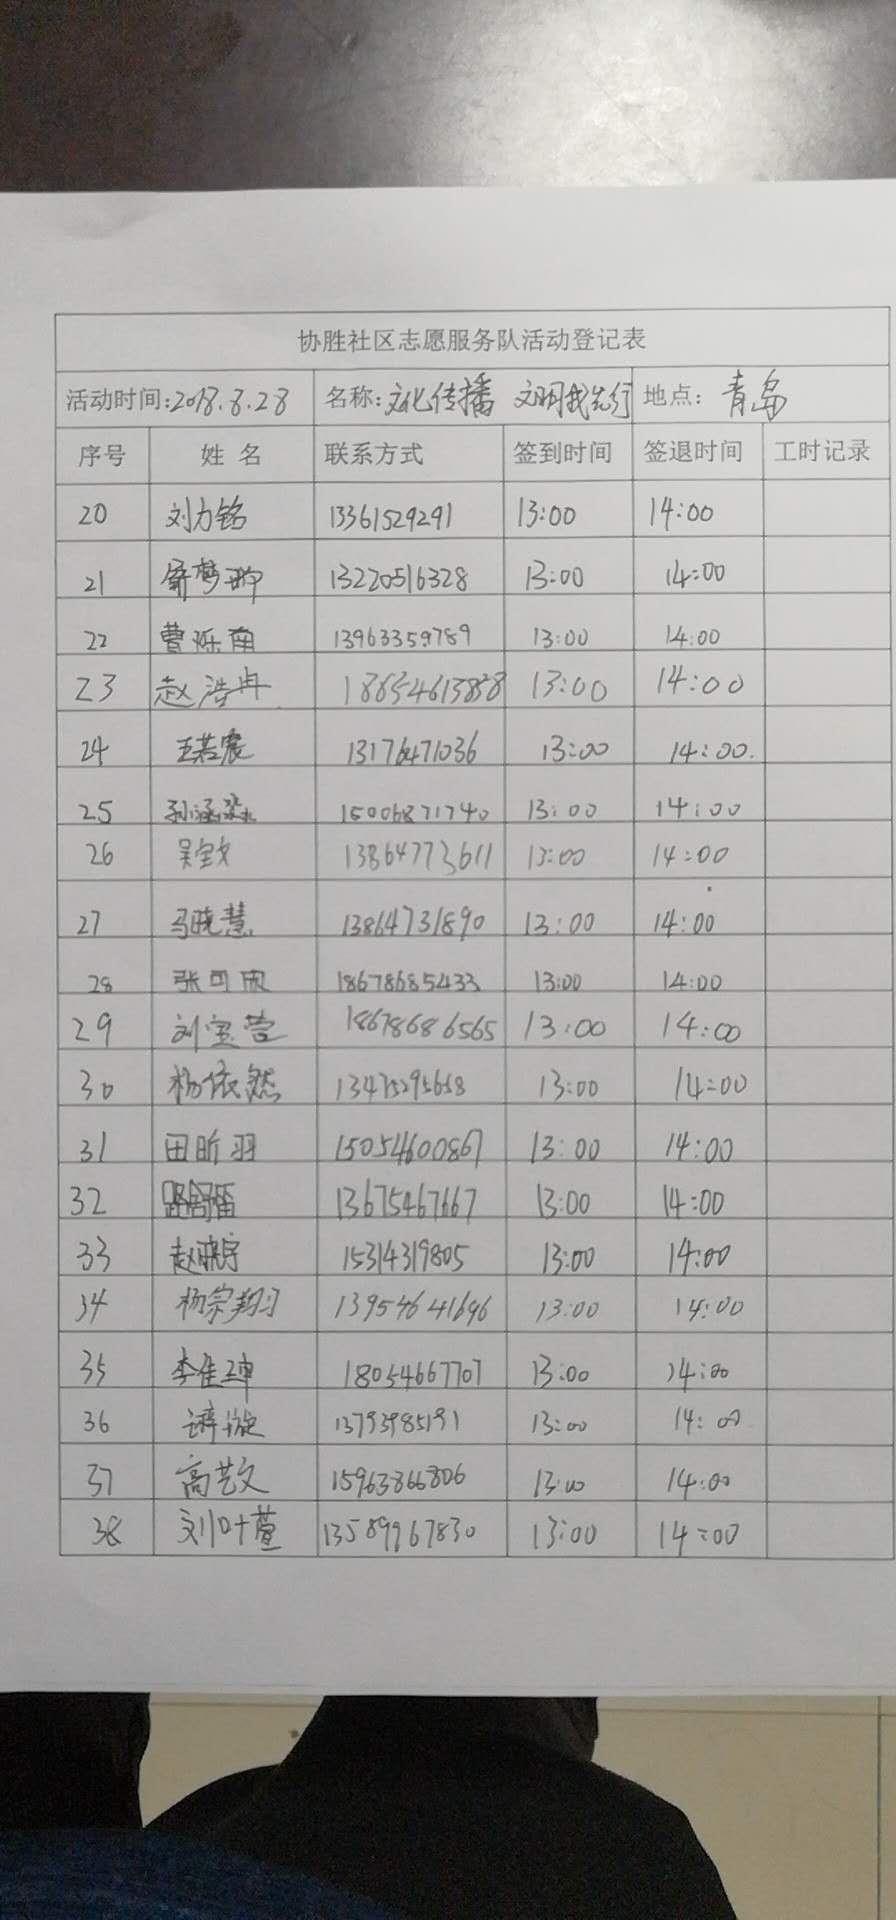 协胜社区志愿服务队活动登记表
活动时间:2018.8.28 名称:文化传播 文明我先行 地点: 青岛
序号 姓名 联系方式 签到时间 签退时间 工时记录
20 刘力铭 13361529291 13:00 14:00
21 13220516328 13:00 14:00
22 曹烁南 13963359789 13:00 14:00
23 赵浩冉 18654613828 13:00 14:00
24 王若宸 13176471036 13:00 14:00.
25 15006871740 13:00 14:00
26 吴钦文 13864773611 13:00 14:00
27 马晓慧 13864731890 13:00 14:00
28 张可欣 18678685433 13:00 14:00
29 刘宝萱 18678686565 13:00 14:00
30 杨依然 13475295668 13:00 14:00
31 田昕羽 15054600867 13:00 14:00
32 13675467667 13:00 14:00
33 赵晓宇 15314319805 13:00 14:00
34 杨宗翔 13954641696 13:00 14:00
35 李佳坤 18054667707 13:00 14:00
36 13793985191 13:00 14:00
37 高艺文 15963866806 13:00 14:00
38 刘叶萱 13589967830 13:00 14:00